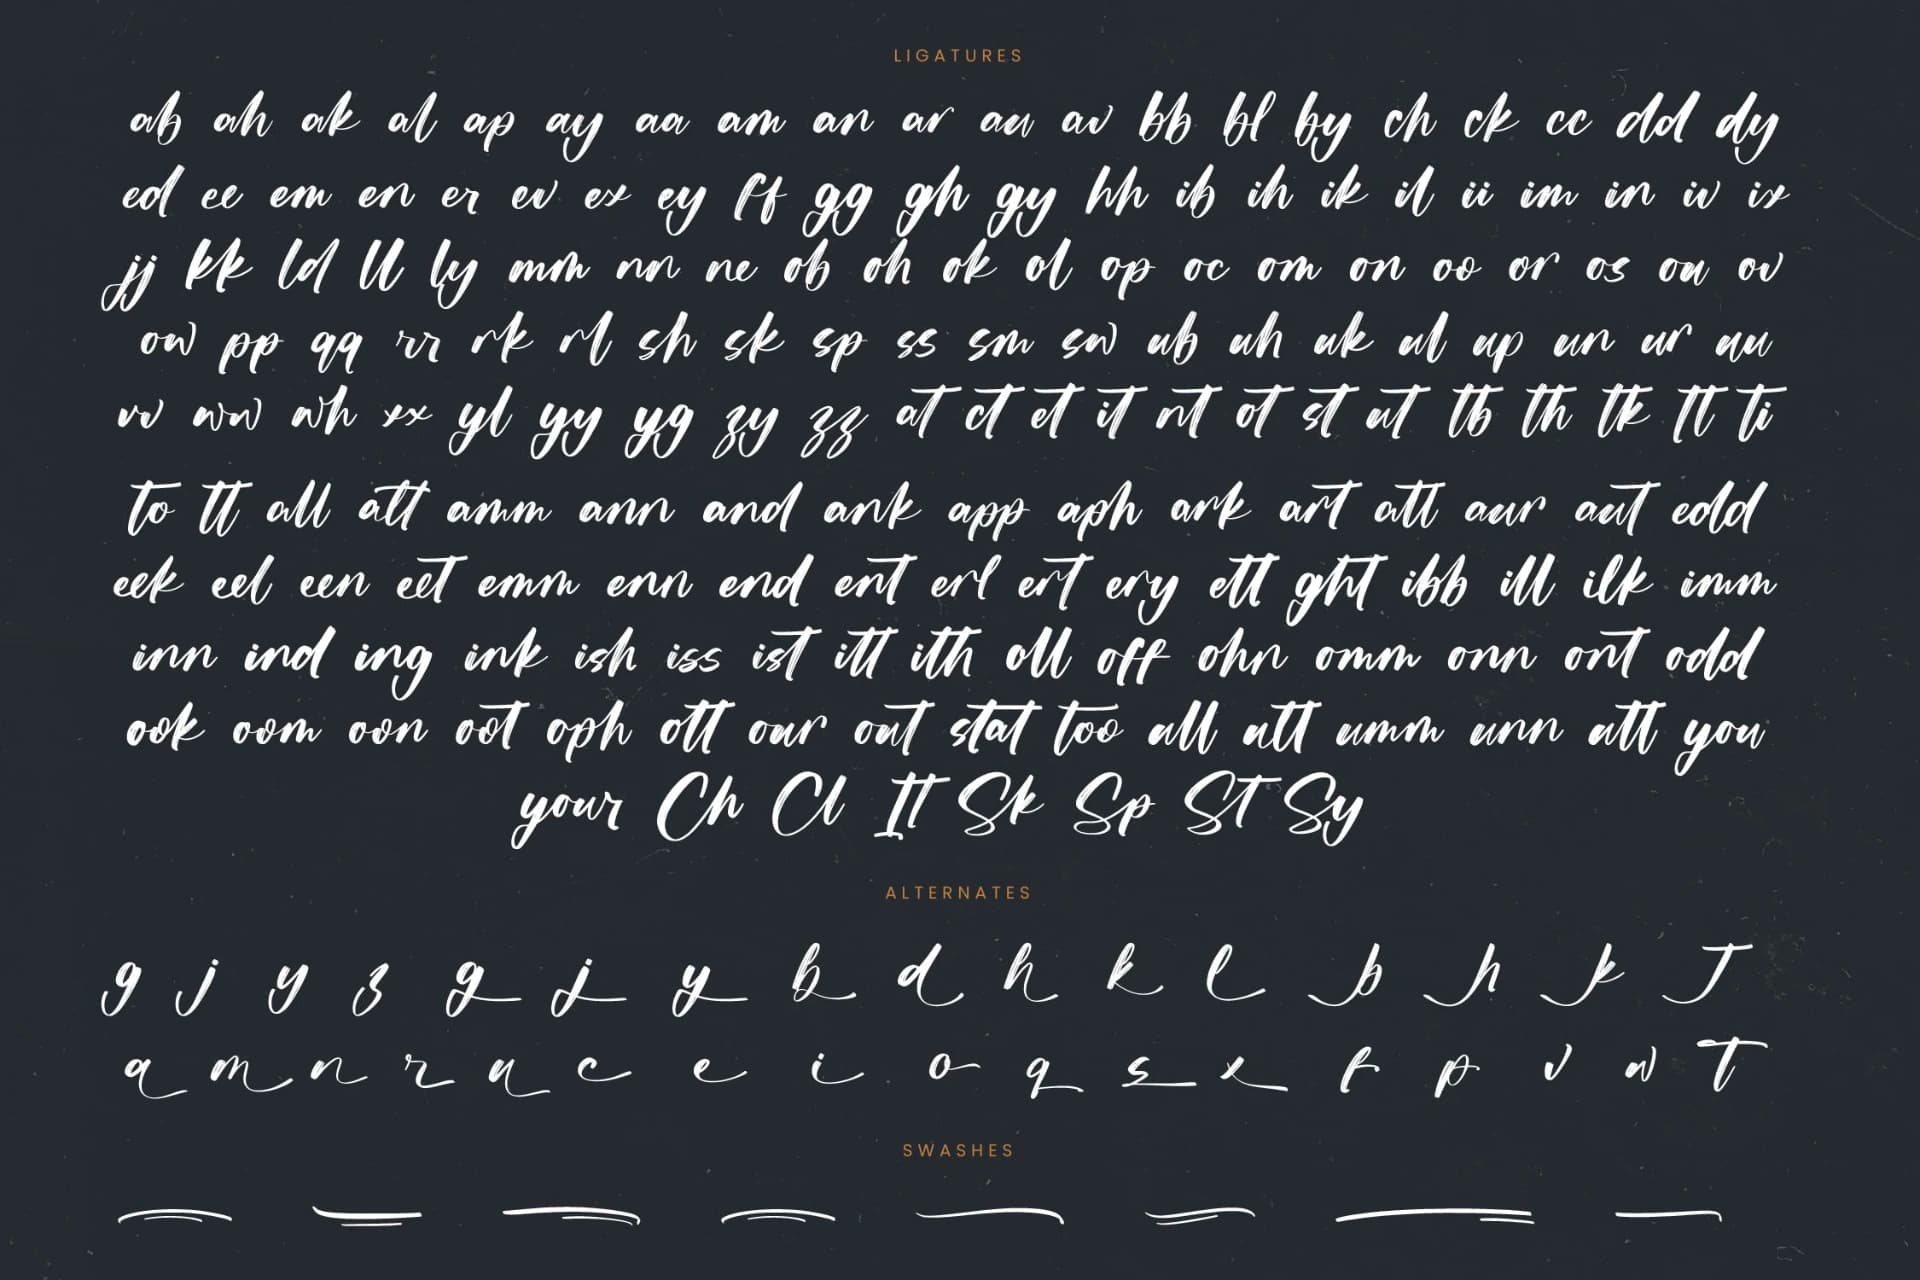 LIGATURES
ab ah ak al ap ay aa am an ar au av bb bl by ch ck cc dd dy
ed ee em en er ev ex ey ff gg gh gy hh ib ih ik il ii im in iv ix
jj kk ld ll ly mm nn ne ob oh ok ol op oc om on oo or os ou ov
ow pp qq rr rk rl sh sk sp ss sm sw ub uh uk ul up un ur uu
vv ww wh xx yl yy yg zy zz at ct et it nt ot st ut tb th tk tl ti
to tt all att amm ann and ank app aph ark art atl aur aut edd
eek eel een eet emm enn end ent erl ert ery ett ght ibb ill ilk imm
inn ind ing ink ish iss ist itt ith oll off ohn omm onn ont odd
ook oom oon oot oph ott our out stat too ull utt umm unn utt you
your Ch Cl It Sk Sp St Sy
ALTERNATES
g j y z g j y b d h k l b h k T
a m n r u c e i o q s x f p v w t
SWASHES